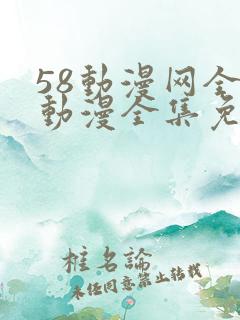 58動漫网全
動漫全集免
椎名論
未经同意禁止转载